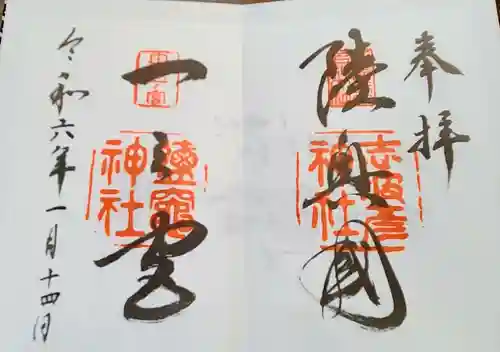 奉拝
陸奥國
志波彦神社
一之宮
鹽竈神社
令和六年一月十四日